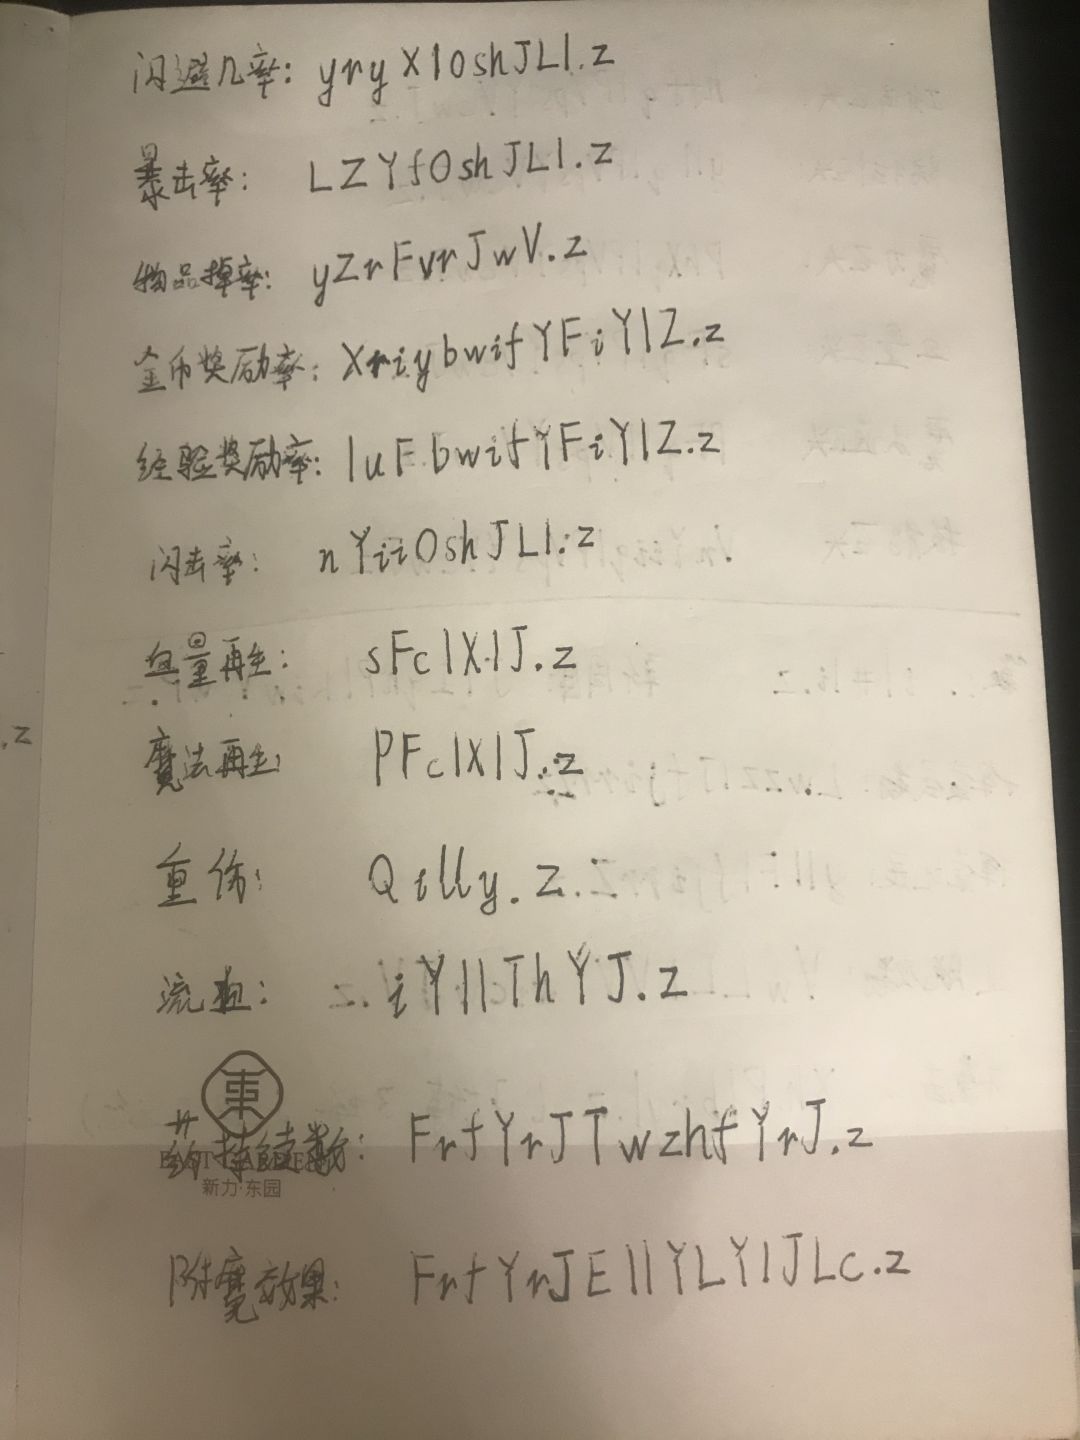 闪避几率: yryX10shJLl.z
暴击率: LZYf0shJLl.z
物品掉率: yZrFvrJwV.z
金币奖励率: XriybwifYFiYlZ.z
经验奖励率: luFbwifYFiYlZ.z
闪击率: nYii0shJLl.z
血量再生: sFclXlJ.z
魔法再生: PFclXlJ.z
.z
重伤: Qilly.z
流血: iYllThYJ.z
東
药持续数: FrfYrJTwzhfYrJ.z
EAST GARDEN
新力·东园
附魔效果: FrfYrJEllYLYlJLc.z